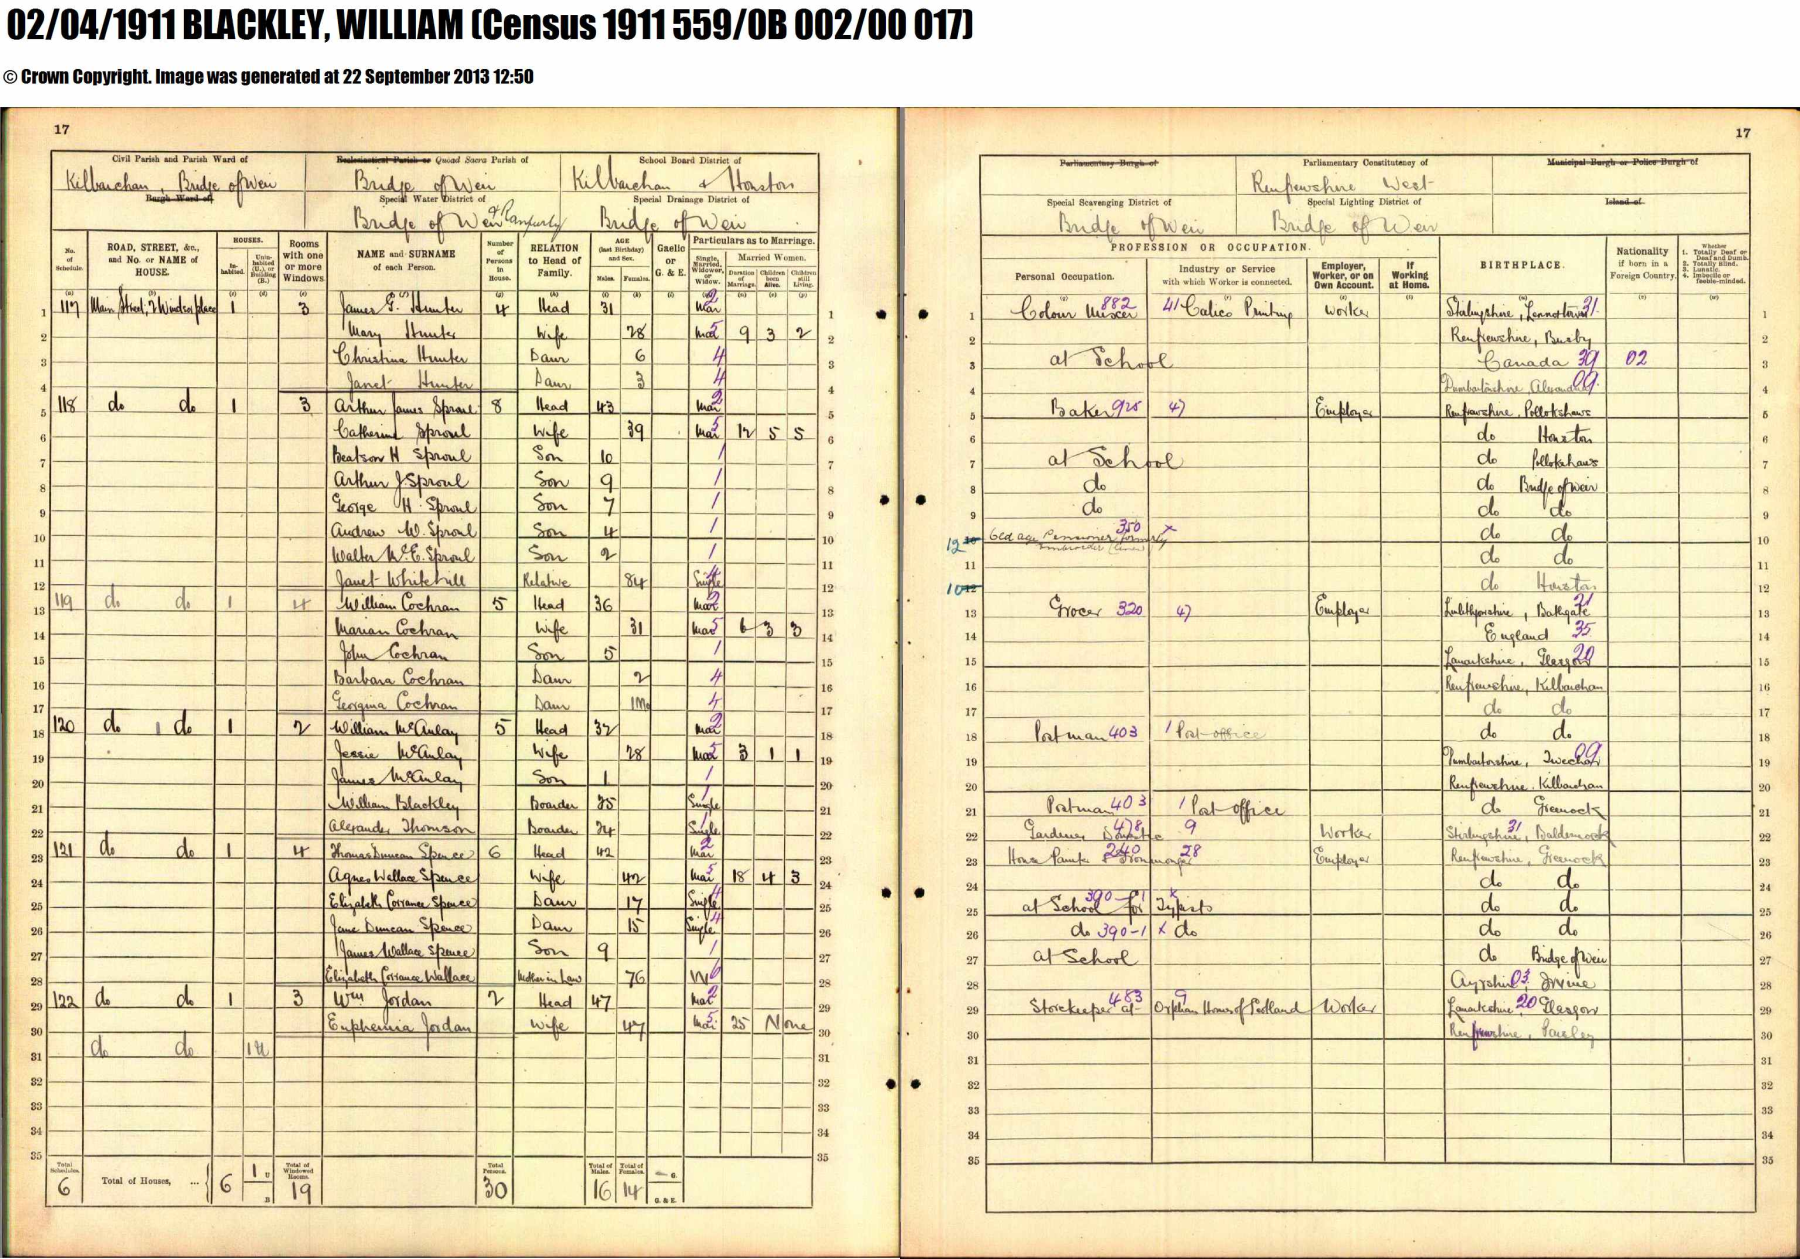 02/04/1911 BLACKLEY, WILLIAM (Census 1911 559/0B 002/00 017)
© Crown Copyright. Image was generated at 22 September 2013 12:50
17
Civil Parish and Parish Ward of Ecclesiastical Parish or Quoad Sacra Parish of School Board District of
Kilbarchan, Bridge of Weir Bridge of Weir Kilbarchan & Houston
Burgh Ward of Special Water District of Special Drainage District of
Bridge of Weir & Ranfurly Bridge of Weir
No. of Schedule. ROAD, STREET, &c., and No. or NAME of HOUSE. HOUSES. Inhabited. Uninhabited (U.), or Building (B.) Rooms with one or more Windows NAME and SURNAME of each Person. Number of Persons in House. RELATION to Head of Family. AGE (last Birthday) and Sex. Males. Females. Gaelic or G. & E. Particulars as to Marriage. Single, Married, Widower, or Widow. Married Women. Duration of Marriage. Children born Alive. Children still Living.
1 117 Main Street, 2 Windsor place 1 3 James Hunter 4 Head 31 Mar 2 1
2 Mary Hunter Wife 28 Mar 5 9 3 2 2
3 Christina Hunter Daur 6 4 3
4 Janet Hunter Daur 3 4 4
5 118 do do 1 3 Arthur James Sproul 8 Head 43 Mar 2 5
6 Catherine Sproul Wife 39 Mar 5 12 5 5 6
7 Beatson H Sproul Son 10 1 7
8 Arthur J. Sproul Son 9 1 8
9 George H. Sproul Son 7 1 9
10 Andrew W. Sproul Son 4 1 10
11 Walter McE. Sproul Son 2 1 11
12 Janet Whitehill Relative 84 Single 4 12
13 119 do do 1 4 William Cochran 5 Head 36 Mar 2 13
14 Marian Cochran Wife 31 Mar 5 6 3 3 14
15 John Cochran Son 5 1 15
16 Barbara Cochran Daur 2 4 16
17 Georgina Cochran Daur 1m 4 17
18 120 do 1 do 1 2 William McAulay 5 Head 32 Mar 2 18
19 Jessie McAulay Wife 28 Mar 5 3 1 1 19
20 James McAulay Son 1 1 20
21 William Blackley Boarder 25 Single 1 21
22 Alexander Thomson Boarder 24 Single 1 22
23 121 do do 1 4 Thomas Duncan Spence 6 Head 42 Mar 2 23
24 Agnes Wallace Spence Wife 42 Mar 5 18 4 3 24
25 Elizabeth Corrance Spence Daur 17 Single 4 25
26 Jane Duncan Spence Daur 15 Single 4 26
27 James Wallace Spence Son 9 1 27
28 Elizabeth Corrance Wallace Mother in Law 76 W 6 28
29 122 do do 1 3 Wm Jordan 2 Head 47 Mar 2 29
30 Euphemia Jordan Wife 47 Mar 5 25 None 30
31 do do 1U 31
32 32
33 33
34 34
35 35
Total Schedules. 6 Total of Houses, ... 6 1 U B Total of Windowed Rooms. 19 Total Persons. 30 Total of Males. 16 Total of Females. 14 G. G. & E.
17
Parliamentary Burgh of Parliamentary Constituency of Municipal Burgh or Police Burgh of
Renfrewshire West
Special Scavenging District of Special Lighting District of Island of
Bridge of Weir Bridge of Weir
PROFESSION OR OCCUPATION. Personal Occupation. Industry or Service with which Worker is connected. Employer, Worker, or on Own Account. If Working at Home. BIRTHPLACE. Nationality if born in a Foreign Country. Whether 1. Totally Deaf or Deaf and Dumb. 2. Totally Blind. 3. Lunatic. 4. Imbecile or feeble-minded.
1 Colour Mixer 882 41 Calico Printing Worker Stirlingshire, Lennoxtown 31 1
2 Renfrewshire, Busby 2
3 at School Canada 39 02 3
4 Dumbartonshire, Alexandria 09 4
5 Baker 925 47 Employer Renfrewshire, Pollokshaws 5
6 do Houston 6
7 at School do Pollokshaws 7
8 do do Bridge of Weir 8
9 do do do 9
10 12 Old age Pensioner formerly 350 x Embroider (Linen) do do 10
11 do do 11
12 10 do Houston 12
13 Grocer 320 47 Employer Linlithgowshire, Bathgate 21 13
14 England 35 14
15 Lanarkshire, Glasgow 20 15
16 Renfrewshire, Kilbarchan 16
17 do do 17
18 Postman 403 1 Post office do do 18
19 Dumbartonshire, Twechar 09 19
20 Renfrewshire. Kilbarchan 20
21 Postman 403 1 Post office do Greenock 21
22 Gardener Domestic 478 9 Worker Stirlingshire, 31 22
23 House Painter & Ironmonger 240 28 Employer Renfrewshire, Greenock 23
24 do do 24
25 at School for Typists 390-1 x do do 25
26 do 390-1 x do do do 26
27 at School do Bridge of Weir 27
28 Ayrshire 03, Irvine 28
29 Storekeeper at 483 9 Orphan Homes of Scotland Worker Lanarkshire 20 Glasgow 29
30 Renfrewshire, Paisley 30
31 31
32 32
33 33
34 34
35 35